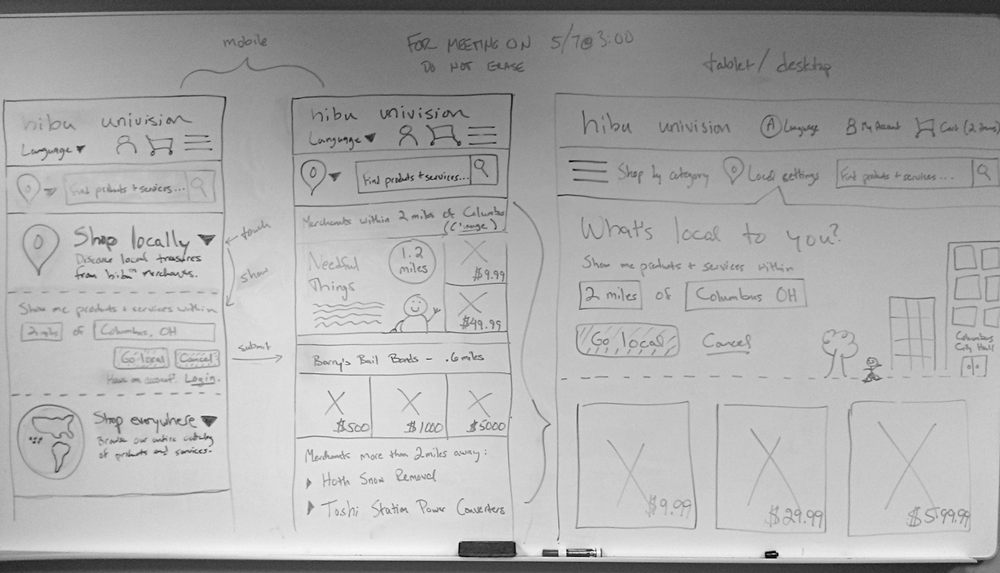 mobile
FOR MEETING ON 5/7@3:00
DO NOT ERASE
tablet/desktop
hibu univision
Language
Find products + services...
Shop locally
Discover local treasures
from hibu™ merchants.
Show me products + services within
2 miles of Columbus, OH
Go local Cancel
Have an account? Login.
Shop everywhere
Browse our entire catalog
of products and services.
touch
show
submit
hibu univision
Language
Find products + services...
Merchants within 2 miles of Columbus
(Change)
Needful
Things
1.2
miles
$9.99
$49.99
Barry's Bail Bonds - .6 miles
$500 $1000 $5000
Merchants more than 2 miles away:
Hoth Snow Removal
Toshi Station Power Converters
hibu univision Language My Account Cart (2 items)
Shop by category Local settings Find products + services...
What's local to you?
Show me products + services within
2 miles of Columbus OH
Go local Cancel
Columbus
City Hall
$9.99 $29.99 $599.99